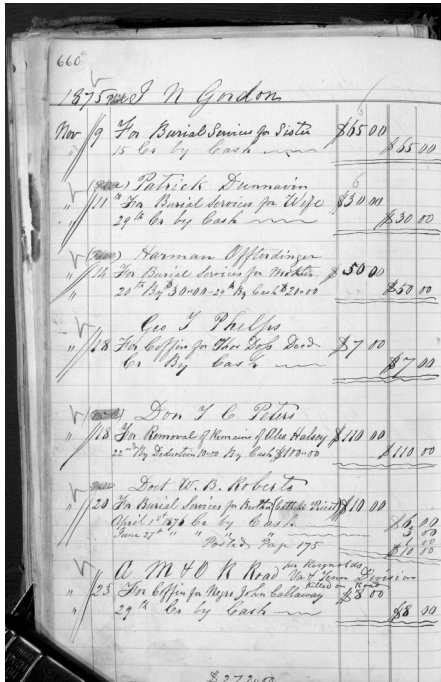 660
1875 J N Gordon
Nov 9 For Burial Services for Sister $65 00
" 15 Cr by Cash $65 00
Patrick Dunnavin
" 11th For Burial Services for Wife $30 00
29th Cr by Cash $30 00
Harman Offterdinger
" 14 For Burial Services for Mother $50 00
20th By $30.00 - 29th By Cash $20.00 $50 00
Geo T Phelps
" 18 For Coffin for Thos Doss Decd $7 00
Cr By Cash $7 00
Don T C Peters
" 18 For Removal of Remains of Alex Halsey $110 00
22nd By Deduction 10.00 By Cash $100.00 $110 00
Doct W. B. Roberts
" 20 For Burial Services for (Catholic Priest) $10 00
April 1st 1876 Cr by Cash $6 00
June 27th " " " 3 00
Posted Page 175 $10 00
A M & O R Road
Reynolds
Va & Tenn Division
Killed on Road
" 23 For Coffin for Negro John Callaway $8 00
29th Cr by Cash $8 00
$272.00